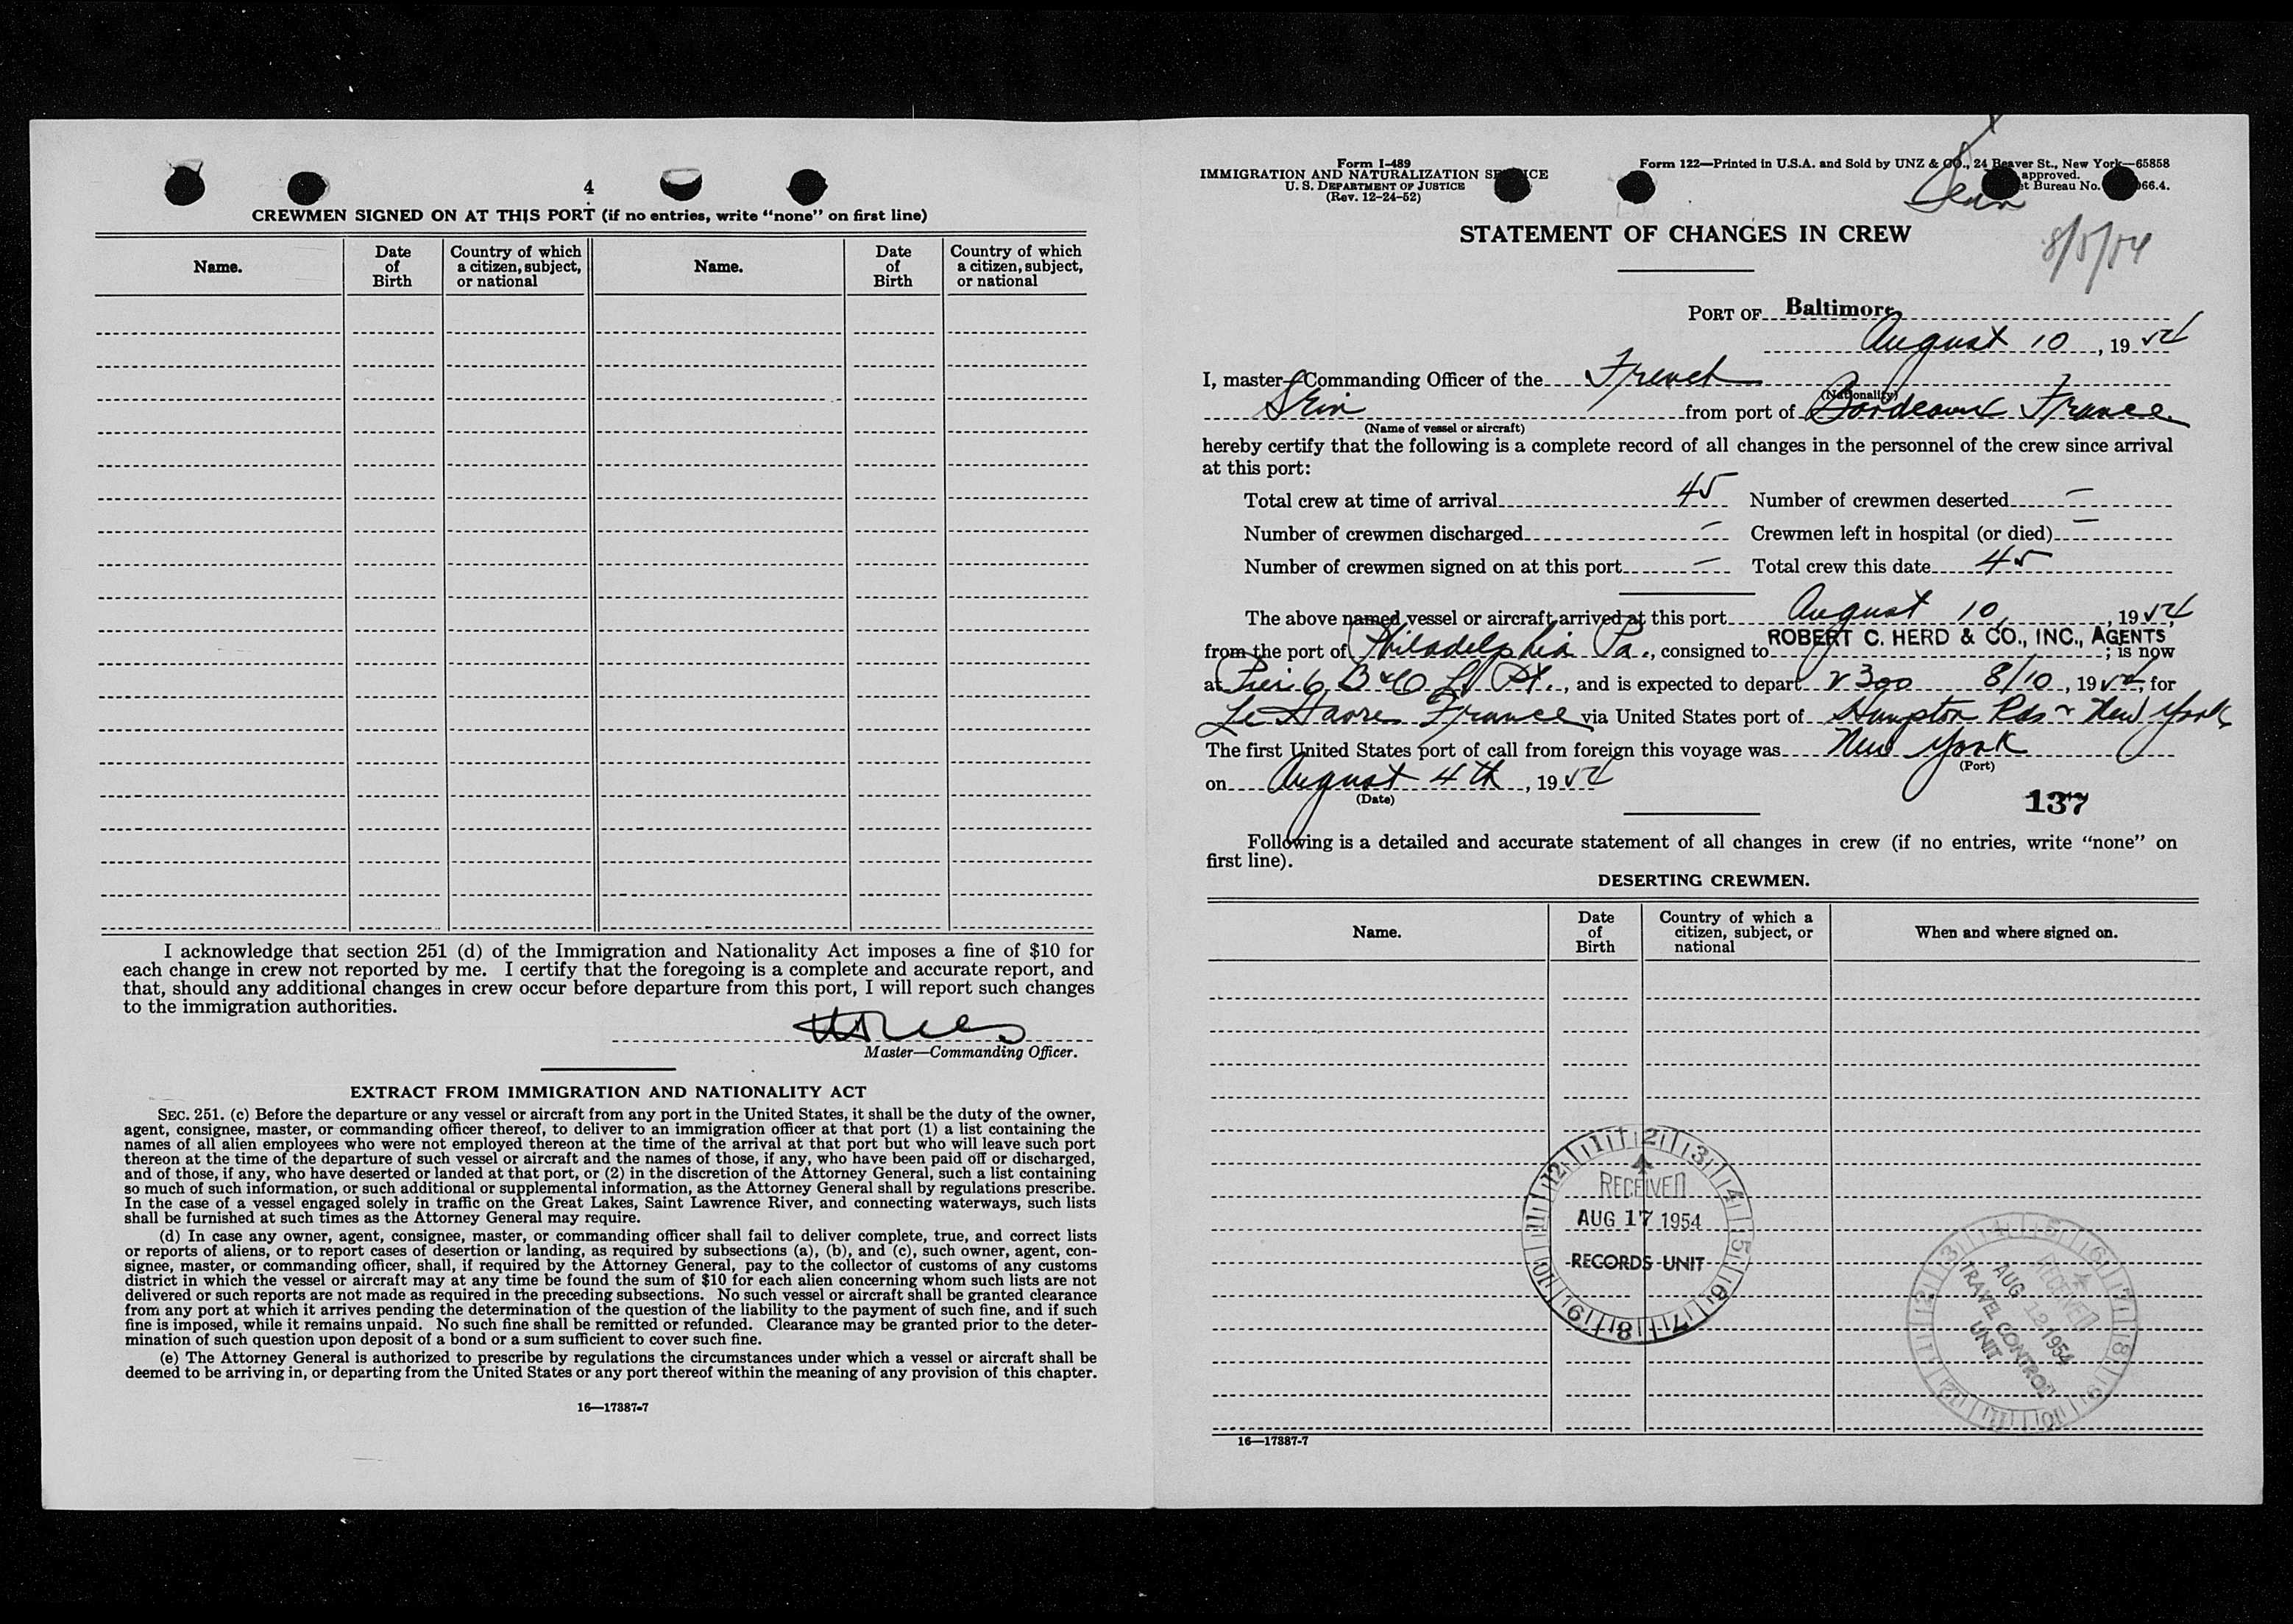 4
CREWMEN SIGNED ON AT THIS PORT (if no entries, write “none” on first line)
Name.
Date of Birth
Country of which a citizen, subject, or national
Name.
Date of Birth
Country of which a citizen, subject, or national
I acknowledge that section 251 (d) of the Immigration and Nationality Act imposes a fine of $10 for
each change in crew not reported by me. I certify that the foregoing is a complete and accurate report, and
that, should any additional changes in crew occur before departure from this port, I will report such changes
to the immigration authorities.
Master—Commanding Officer.
EXTRACT FROM IMMIGRATION AND NATIONALITY ACT
SEC. 251. (c) Before the departure or any vessel or aircraft from any port in the United States, it shall be the duty of the owner,
agent, consignee, master, or commanding officer thereof, to deliver to an immigration officer at that port (1) a list containing the
names of all alien employees who were not employed thereon at the time of the arrival at that port but who will leave such port
thereon at the time of the departure of such vessel or aircraft and the names of those, if any, who have been paid off or discharged,
and of those, if any, who have deserted or landed at that port, or (2) in the discretion of the Attorney General, such a list containing
so much of such information, or such additional or supplemental information, as the Attorney General shall by regulations prescribe.
In the case of a vessel engaged solely in traffic on the Great Lakes, Saint Lawrence River, and connecting waterways, such lists
shall be furnished at such times as the Attorney General may require.
(d) In case any owner, agent, consignee, master, or commanding officer shall fail to deliver complete, true, and correct lists
or reports of aliens, or to report cases of desertion or landing, as required by subsections (a), (b), and (c), such owner, agent, con-
signee, master, or commanding officer, shall, if required by the Attorney General, pay to the collector of customs of any customs
district in which the vessel or aircraft may at any time be found the sum of $10 for each alien concerning whom such lists are not
delivered or such reports are not made as required in the preceding subsections. No such vessel or aircraft shall be granted clearance
from any port at which it arrives pending the determination of the question of the liability to the payment of such fine, and if such
fine is imposed, while it remains unpaid. No such fine shall be remitted or refunded. Clearance may be granted prior to the deter-
mination of such question upon deposit of a bond or a sum sufficient to cover such fine.
(e) The Attorney General is authorized to prescribe by regulations the circumstances under which a vessel or aircraft shall be
deemed to be arriving in, or departing from the United States or any port thereof within the meaning of any provision of this chapter.
16—17387-7
Form I-489
IMMIGRATION AND NATURALIZATION
U. S. DEPARTMENT OF JUSTICE
(Rev. 12-24-52)
Form 122—Printed in U.S.A. and Sold by UNZ & CO., 24 Beaver St., New York—65858
approved.
Bureau No. 66.4.
STATEMENT OF CHANGES IN CREW
8/5/54
PORT OF Baltimore
August 10, 1954
I, master—Commanding Officer of the French
(Nationality)
Sein from port of Bordeaux France
(Name of vessel or aircraft)
hereby certify that the following is a complete record of all changes in the personnel of the crew since arrival
at this port:
Total crew at time of arrival 45 Number of crewmen deserted —
Number of crewmen discharged — Crewmen left in hospital (or died) —
Number of crewmen signed on at this port — Total crew this date 45
The above named vessel or aircraft arrived at this port August 10, 1954,
from the port of Philadelphia Pa., consigned to ROBERT C. HERD & CO., INC., AGENTS; is now
at Pier 6 B&O L. Pt., and is expected to depart 2300 8/10, 1954, for
Le Havre France via United States port of Hampton Rds & New York
The first United States port of call from foreign this voyage was New York
(Port)
on August 4th, 1954
(Date)
137
Following is a detailed and accurate statement of all changes in crew (if no entries, write “none” on
first line).
DESERTING CREWMEN.
Name.
Date of Birth
Country of which a citizen, subject, or national
When and where signed on.
RECEIVED
AUG 17 1954
RECORDS UNIT
RECEIVED
AUG 12 1954
TRAVEL CONTROL
UNIT
16—17387-7